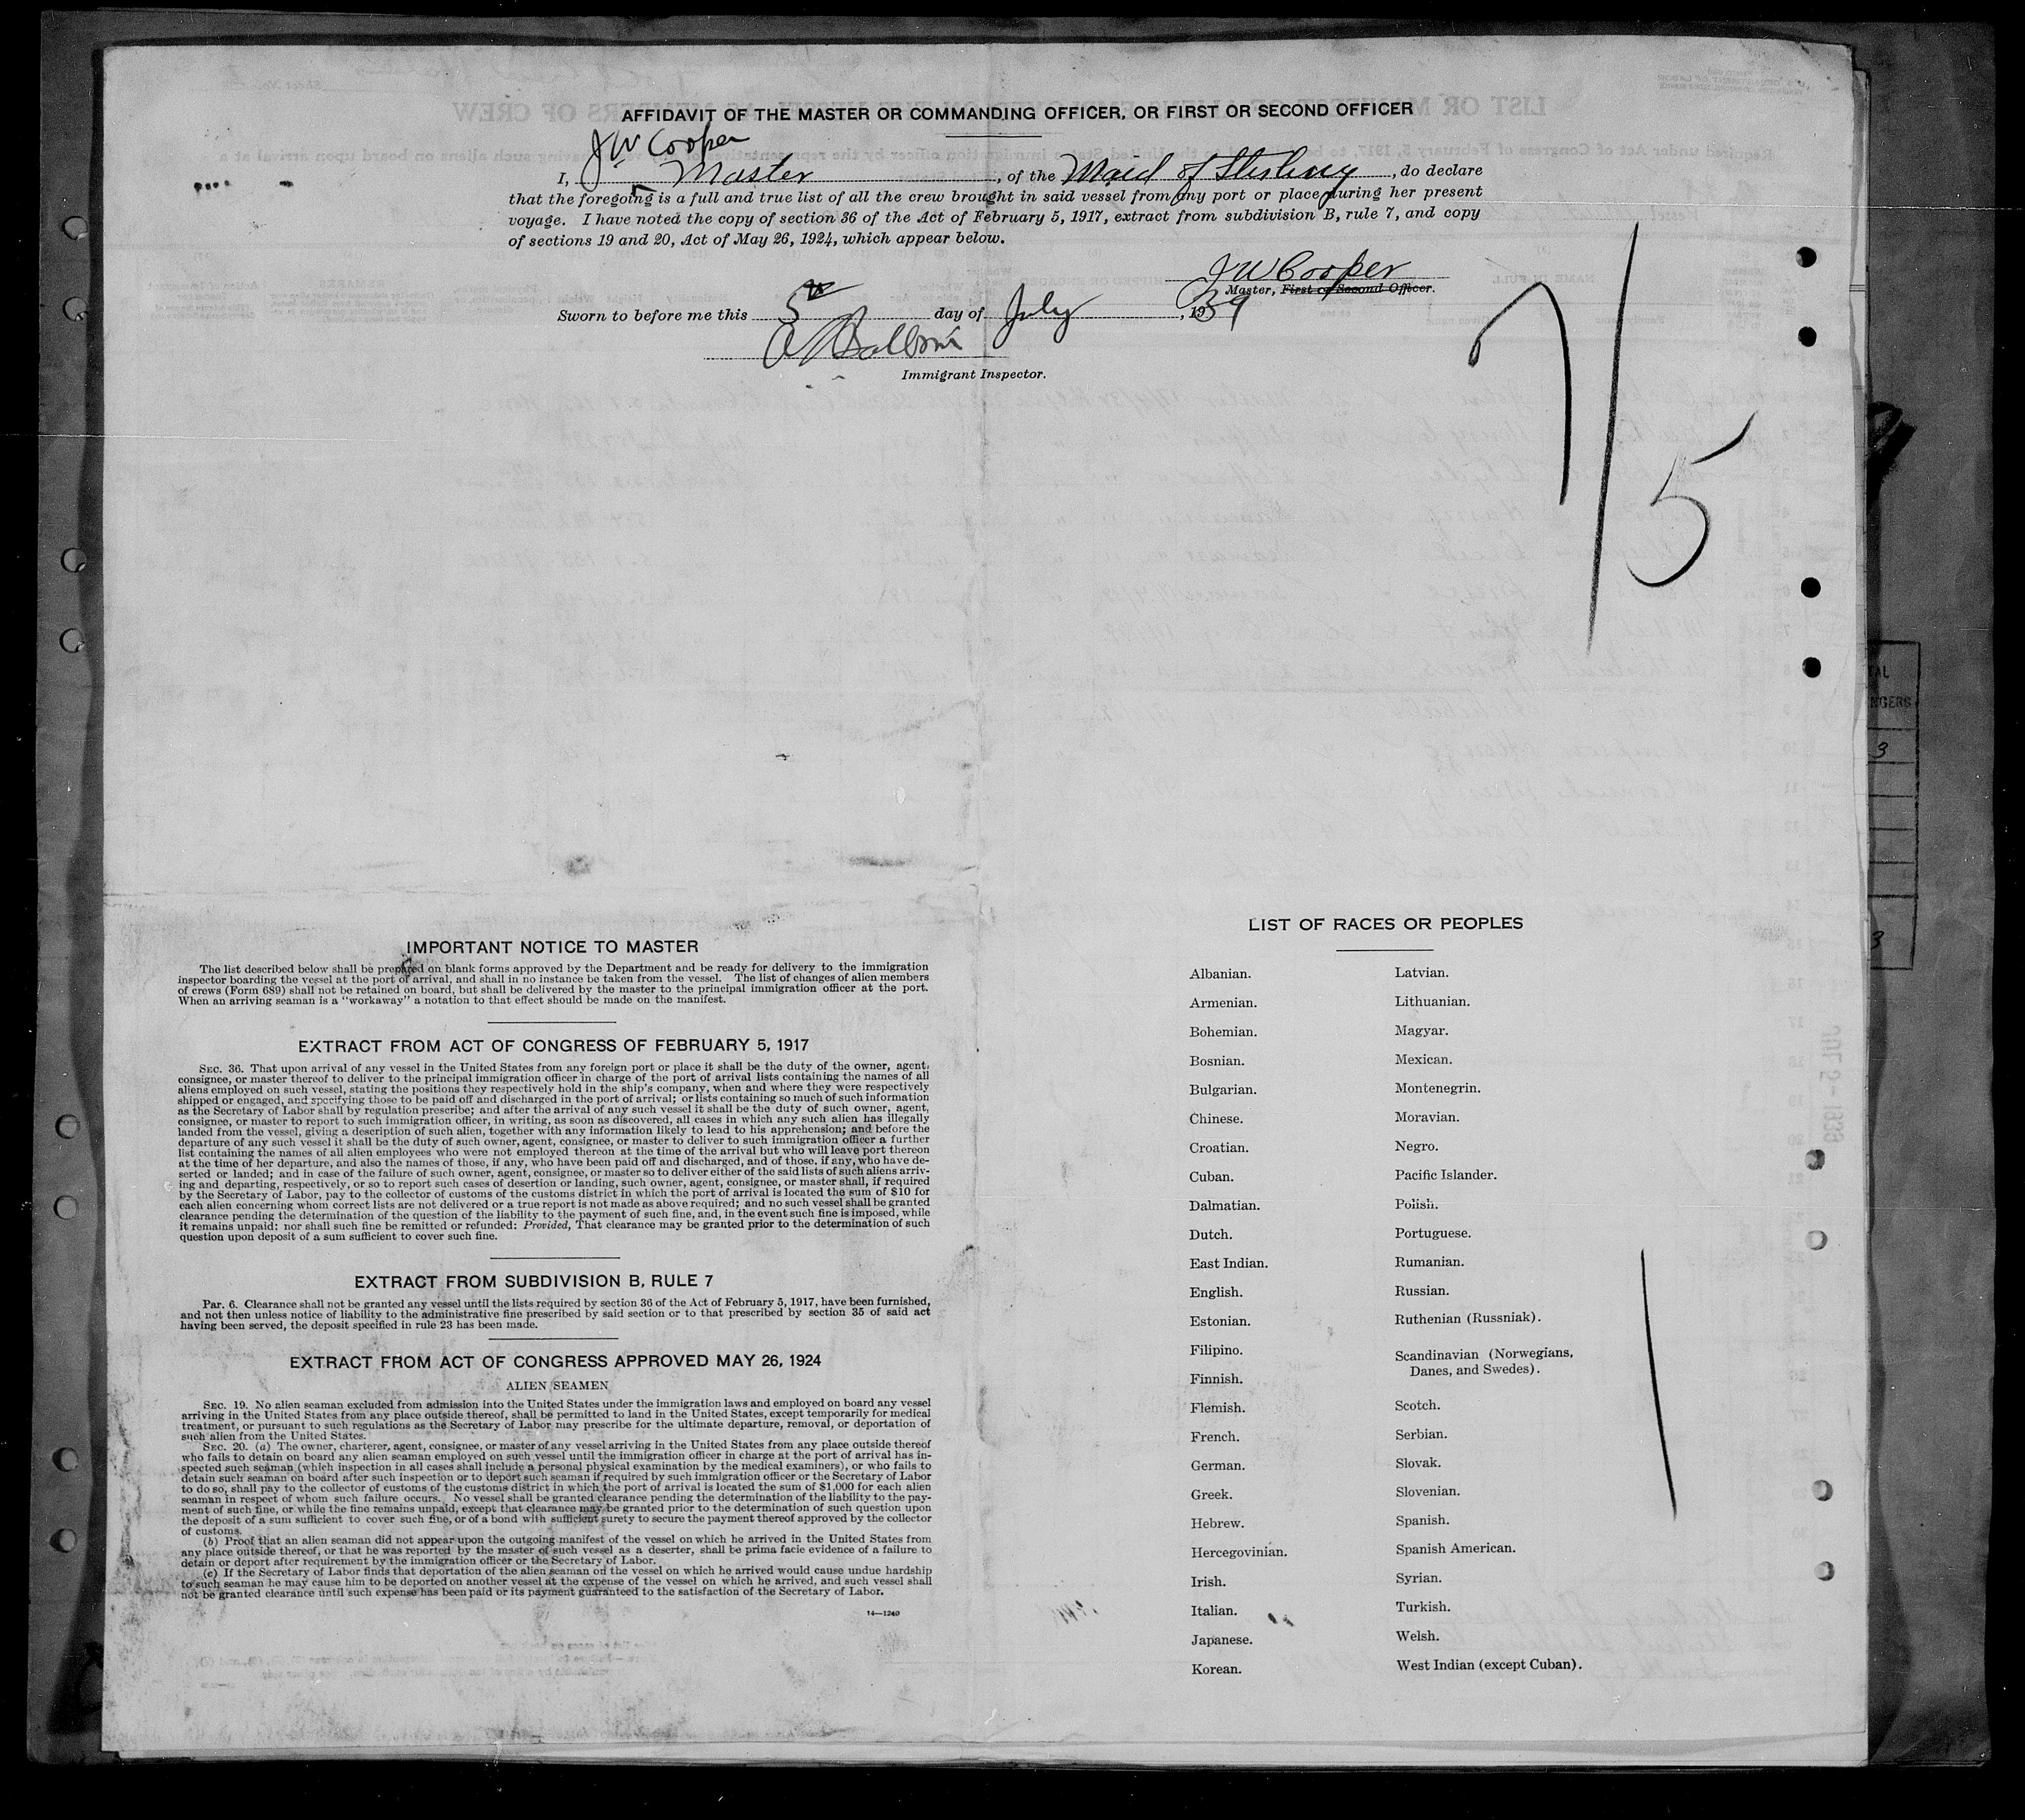 AFFIDAVIT OF THE MASTER OR COMMANDING OFFICER, OR FIRST OR SECOND OFFICER
J W Cooper
I, Master, of the Maid of Stirling, do declare
that the foregoing is a full and true list of all the crew brought in said vessel from any port or place during her present
voyage. I have noted the copy of section 36 of the Act of February 5, 1917, extract from subdivision B, rule 7, and copy
of sections 19 and 20, Act of May 26, 1924, which appear below.
J W Cooper
Master, First or Second Officer.
Sworn to before me this 5th day of July, 1939
Immigrant Inspector.
7/5
IMPORTANT NOTICE TO MASTER
The list described below shall be prepared on blank forms approved by the Department and be ready for delivery to the immigration
inspector boarding the vessel at the port of arrival, and shall in no instance be taken from the vessel. The list of changes of alien members
of crews (Form 689) shall not be retained on board, but shall be delivered by the master to the principal immigration officer at the port.
When an arriving seaman is a "workaway" a notation to that effect should be made on the manifest.
EXTRACT FROM ACT OF CONGRESS OF FEBRUARY 5, 1917
SEC. 36. That upon arrival of any vessel in the United States from any foreign port or place it shall be the duty of the owner, agent,
consignee, or master thereof to deliver to the principal immigration officer in charge of the port of arrival lists containing the names of all
aliens employed on such vessel, stating the positions they respectively hold in the ship's company, when and where they were respectively
shipped or engaged, and specifying those to be paid off and discharged in the port of arrival; or lists containing so much of such information
as the Secretary of Labor shall by regulation prescribe; and after the arrival of any such vessel it shall be the duty of such owner, agent,
consignee, or master to report to such immigration officer, in writing, as soon as discovered, all cases in which any such alien has illegally
landed from the vessel, giving a description of such alien, together with any information likely to lead to his apprehension; and before the
departure of any such vessel it shall be the duty of such owner, agent, consignee, or master to deliver to such immigration officer a further
list containing the names of all alien employees who were not employed thereon at the time of the arrival but who will leave port thereon
at the time of her departure, and also the names of those, if any, who have been paid off and discharged, and of those, if any, who have de-
serted or landed; and in case of the failure of such owner, agent, consignee, or master so to deliver either of the said lists of such aliens arriv-
ing and departing, respectively, or so to report such cases of desertion or landing, such owner, agent, consignee, or master shall, if required
by the Secretary of Labor, pay to the collector of customs of the customs district in which the port of arrival is located the sum of $10 for
each alien concerning whom correct lists are not delivered or a true report is not made as above required; and no such vessel shall be granted
clearance pending the determination of the question of the liability to the payment of such fine, and, in the event such fine is imposed, while
it remains unpaid: nor shall such fine be remitted or refunded: Provided, That clearance may be granted prior to the determination of such
question upon deposit of a sum sufficient to cover such fine.
EXTRACT FROM SUBDIVISION B, RULE 7
Par. 6. Clearance shall not be granted any vessel until the lists required by section 36 of the Act of February 5, 1917, have been furnished,
and not then unless notice of liability to the administrative fine prescribed by said section or to that prescribed by section 35 of said act
having been served, the deposit specified in rule 23 has been made.
EXTRACT FROM ACT OF CONGRESS APPROVED MAY 26, 1924
ALIEN SEAMEN
SEC. 19. No alien seaman excluded from admission into the United States under the immigration laws and employed on board any vessel
arriving in the United States from any place outside thereof, shall be permitted to land in the United States, except temporarily for medical
treatment, or pursuant to such regulations as the Secretary of Labor may prescribe for the ultimate departure, removal, or deportation of
such alien from the United States.
SEC. 20. (a) The owner, charterer, agent, consignee, or master of any vessel arriving in the United States from any place outside thereof
who fails to detain on board any alien seaman employed on such vessel until the immigration officer in charge at the port of arrival has in-
spected such seaman (which inspection in all cases shall include a personal physical examination by the medical examiners), or who fails to
detain such seaman on board after such inspection or to deport such seaman if required by such immigration officer or the Secretary of Labor
to do so, shall pay to the collector of customs of the customs district in which the port of arrival is located the sum of $1,000 for each alien
seaman in respect of whom such failure occurs. No vessel shall be granted clearance pending the determination of the liability to the pay-
ment of such fine, or while the fine remains unpaid, except that clearance may be granted prior to the determination of such question upon
the deposit of a sum sufficient to cover such fine, or of a bond with sufficient surety to secure the payment thereof approved by the collector
of customs.
(b) Proof that an alien seaman did not appear upon the outgoing manifest of the vessel on which he arrived in the United States from
any place outside thereof, or that he was reported by the master of such vessel as a deserter, shall be prima facie evidence of a failure to
detain or deport after requirement by the immigration officer or the Secretary of Labor.
(c) If the Secretary of Labor finds that deportation of the alien seaman on the vessel on which he arrived would cause undue hardship
to such seaman he may cause him to be deported on another vessel at the expense of the vessel on which he arrived, and such vessel shall
not be granted clearance until such expense has been paid or its payment guaranteed to the satisfaction of the Secretary of Labor.
14—1240
LIST OF RACES OR PEOPLES
Albanian.
Armenian.
Bohemian.
Bosnian.
Bulgarian.
Chinese.
Croatian.
Cuban.
Dalmatian.
Dutch.
East Indian.
English.
Estonian.
Filipino.
Finnish.
Flemish.
French.
German.
Greek.
Hebrew.
Hercegovinian.
Irish.
Italian.
Japanese.
Korean.
Latvian.
Lithuanian.
Magyar.
Mexican.
Montenegrin.
Moravian.
Negro.
Pacific Islander.
Polish.
Portuguese.
Rumanian.
Russian.
Ruthenian (Russniak).
Scandinavian (Norwegians,
Danes, and Swedes).
Scotch.
Serbian.
Slovak.
Slovenian.
Spanish.
Spanish American.
Syrian.
Turkish.
Welsh.
West Indian (except Cuban).
3
3